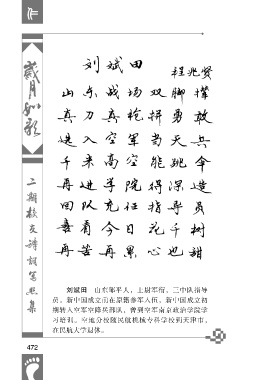 作
岁月如歌
二期校友诗词写照集
刘斌田
程兆贤
山东战场双脚撑
真刀真枪拼勇敢
进入空军当天兵
千米高空能跳伞
再进学院得深造
回队充任指导员
喜看今日花千树
再苦再累心也甜
刘斌田 山东邹平人，上尉军衔，三中队指导
员。新中国成立前在原籍参军入伍，新中国成立初
期转入空军空降兵部队，曾到空军南京政治学院学
习培训。空地分校随民航机械专科学校到天津市，
在民航大学退休。
472